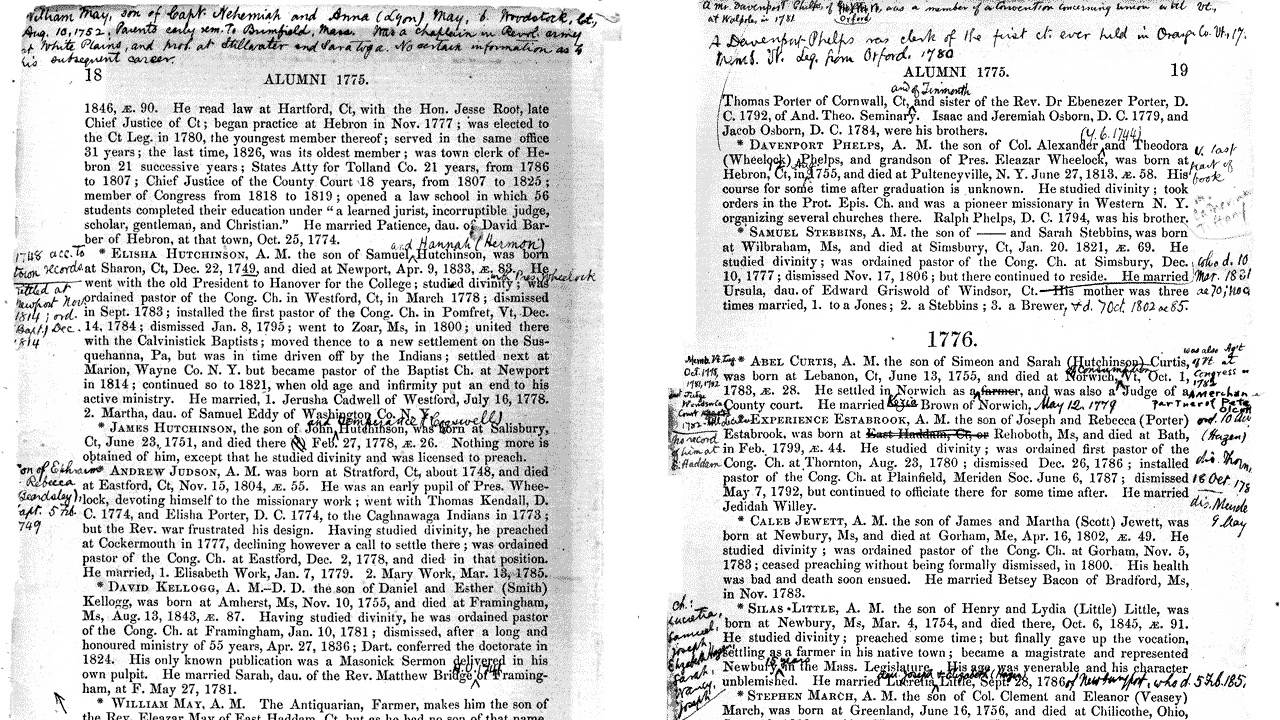 William May, son of Capt. Nehemiah and Anna (Lyon) May, b. Woodstock, Ct,
Aug. 10, 1752. Parents early rem. to Brimfield, Mass. Was a chaplain in Revol. army
at White Plains, and prob. at Stillwater and Saratoga. No certain information as to
his subsequent career.
18 ALUMNI 1775.
1846, Æ. 90. He read law at Hartford, Ct, with the Hon. Jesse Root, late
Chief Justice of Ct; began practice at Hebron in Nov. 1777; was elected to
the Ct Leg. in 1780, the youngest member thereof; served in the same office
31 years; the last time, 1826, was its oldest member; was town clerk of He-
bron 21 successive years; States Atty for Tolland Co. 21 years, from 1786
to 1807; Chief Justice of the County Court 18 years, from 1807 to 1825;
member of Congress from 1818 to 1819; opened a law school in which 56
students completed their education under “a learned jurist, incorruptible judge,
scholar, gentleman, and Christian.” He married Patience, dau. of David Bar-
ber of Hebron, at that town, Oct. 25, 1774.
and Hannah (Hermon)
* ELISHA HUTCHINSON, A. M. the son of Samuel Hutchinson, was born
at Sharon, Ct, Dec. 22, 1749, and died at Newport, Apr. 9, 1833, Æ. 83. He
went with the old President to Hanover for the College; studied divinity; was
ordained pastor of the Cong. Ch. in Westford, Ct, in March 1778; dismissed
in Sept. 1783; installed the first pastor of the Cong. Ch. in Pomfret, Vt, Dec.
14, 1784; dismissed Jan. 8, 1795; went to Zoar, Ms, in 1800; united there
with the Calvinistick Baptists; moved thence to a new settlement on the Sus-
quehanna, Pa, but was in time driven off by the Indians; settled next at
Marion, Wayne Co. N. Y. but became pastor of the Baptist Ch. at Newport
in 1814; continued so to 1821, when old age and infirmity put an end to his
active ministry. He married, 1. Jerusha Cadwell of Westford, July 16, 1778.
2. Martha, dau. of Samuel Eddy of Washington Co. N. Y.
1748 acc. to
town records
settled at
Newport Nov.
1814; ord.
Bapt. Dec.
1814
with Pres. Wheelock
* JAMES HUTCHINSON, the son of John Hutchinson, was born at Salisbury,
Ct, June 23, 1751, and died there Feb. 27, 1778, Æ. 26. Nothing more is
obtained of him, except that he studied divinity and was licensed to preach.
ANDREW JUDSON, A. M. was born at Stratford, Ct, about 1748, and died
at Eastford, Ct, Nov. 15, 1804, Æ. 55. He was an early pupil of Pres. Whee-
lock, devoting himself to the missionary work; went with Thomas Kendall, D.
C. 1774, and Elisha Porter, D. C. 1774, to the Caghnawaga Indians in 1773;
but the Rev. war frustrated his design. Having studied divinity, he preached
at Cockermouth in 1777, declining however a call to settle there; was ordained
pastor of the Cong. Ch. at Eastford, Dec. 2, 1778, and died in that position.
He married, 1. Elisabeth Work, Jan. 7, 1779. 2. Mary Work, Mar. 13, 1785.
son of Ephraim
Rebecca
(Beardsley)
* DAVID KELLOGG, A. M.–D. D. the son of Daniel and Esther (Smith)
Kellogg, was born at Amherst, Ms, Nov. 10, 1755, and died at Framingham,
Ms, Aug. 13, 1843, Æ. 87. Having studied divinity, he was ordained pastor
of the Cong. Ch. at Framingham, Jan. 10, 1781; dismissed, after a long and
honoured ministry of 55 years, Apr. 27, 1836; Dart. conferred the doctorate in
1824. His only known publication was a Masonick Sermon delivered in his
own pulpit. He married Sarah, dau. of the Rev. Matthew Bridge of Framing-
ham, at F. May 27, 1781.
* WILLIAM MAY, A. M. The Antiquarian, Farmer, makes him the son of
the Rev. Eleazar May of East Haddam, Ct, but as he had no son of that name
A Mr. Davenport Phelps of Orford, was a member of a Convention concerning union with Vt,
at Walpole, in 1781
A Davenport Phelps was clerk of the first ct ever held in Orange Co. Vt, 17.
Memb. Vt. Leg. from Orford, 1780
ALUMNI 1775. 19
Thomas Porter of Cornwall, Ct, and sister of the Rev. Dr Ebenezer Porter, D.
C. 1792, of And. Theo. Seminary. Isaac and Jeremiah Osborn, D. C. 1779, and
Jacob Osborn, D. C. 1784, were his brothers.
* DAVENPORT PHELPS, A. M. the son of Col. Alexander and Theodora
(Wheelock) Phelps, and grandson of Pres. Eleazar Wheelock, was born at
Hebron, Ct, in 1755, and died at Pulteneyville, N. Y. June 27, 1813, Æ. 58. His
course for some time after graduation is unknown. He studied divinity; took
orders in the Prot. Epis. Ch. and was a pioneer missionary in Western N. Y.
organizing several churches there. Ralph Phelps, D. C. 1794, was his brother.
v. last
part of
book
* SAMUEL STEBBINS, A. M. the son of —— and Sarah Stebbins, was born
at Wilbraham, Ms, and died at Simsbury, Ct, Jan. 20. 1821, Æ. 69. He
studied divinity; was ordained pastor of the Cong. Ch. at Simsbury, Dec.
10, 1777; dismissed Nov. 17, 1806; but there continued to reside. He married
Ursula, dau. of Edward Griswold of Windsor, Ct. His mother was three
times married, 1. to a Jones; 2. a Stebbins; 3. a Brewer, & d. 7 Oct. 1802 ae 85.
1776.
* ABEL CURTIS, A. M. the son of Simeon and Sarah (Hutchinson) Curtis,
was born at Lebanon, Ct, June 13, 1755, and died at Norwich, Vt, Oct. 1,
1783, Æ. 28. He settled in Norwich as a farmer, and was also a Judge of a
County court. He married Brown of Norwich, May 12. 1779
EXPERIENCE ESTABROOK, A. M. the son of Joseph and Rebecca (Porter)
Estabrook, was born at East Haddam, Ct, or Rehoboth, Ms, and died at Bath,
in Feb. 1799, Æ. 44. He studied divinity; was ordained first pastor of the
Cong. Ch. at Thornton, Aug. 23, 1780; dismissed Dec. 26, 1786; installed
pastor of the Cong. Ch. at Plainfield, Meriden Soc. June 6, 1787; dismissed
May 7, 1792, but continued to officiate there for some time after. He married
Jedidah Willey.
* CALEB JEWETT, A. M. the son of James and Martha (Scott) Jewett, was
born at Newbury, Ms, and died at Gorham, Me, Apr. 16, 1802, Æ. 49. He
studied divinity; was ordained pastor of the Cong. Ch. at Gorham, Nov. 5,
1783; ceased preaching without being formally dismissed, in 1800. His health
was bad and death soon ensued. He married Betsey Bacon of Bradford, Ms,
in Nov. 1783.
* SILAS LITTLE, A. M. the son of Henry and Lydia (Little) Little, was
born at Newbury, Ms, Mar. 4, 1754, and died there, Oct. 6, 1845, Æ. 91.
He studied divinity; preached some time; but finally gave up the vocation,
settling as a farmer in his native town; became a magistrate and represented
Newbury on the Mass. Legislature. His age was venerable and his character
unblemished. He married Lucretia Little, Sept. 28, 1786 of Newburyport, who d. 5 Feb. 185.
* STEPHEN MARCH, A. M. the son of Col. Clement and Eleanor (Veasey)
March, was born at Greenland, June 16, 1756, and died at Chilicothe, Ohio,